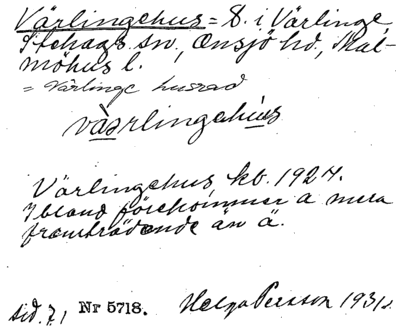 Värlingehus = 8. i Värlinge,
Stehags sn, Onsjö hd, Mal-
möhus l.
= Värlinge husrad
väsrlingehus
Värlingehus kb. 1924.
Ibland förekommer a mera
framträdande än ä.
sid. 7, Nr 5718. Helga Persson 1931.